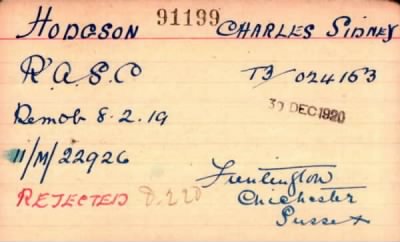 HODGSON 91199 CHARLES SIDNEY
R.A.S.C T3/024163
Demob 8.2.19 30 DEC 1920
11/M/22926
Funtington
REJECTED D.220 Chichester
Sussex